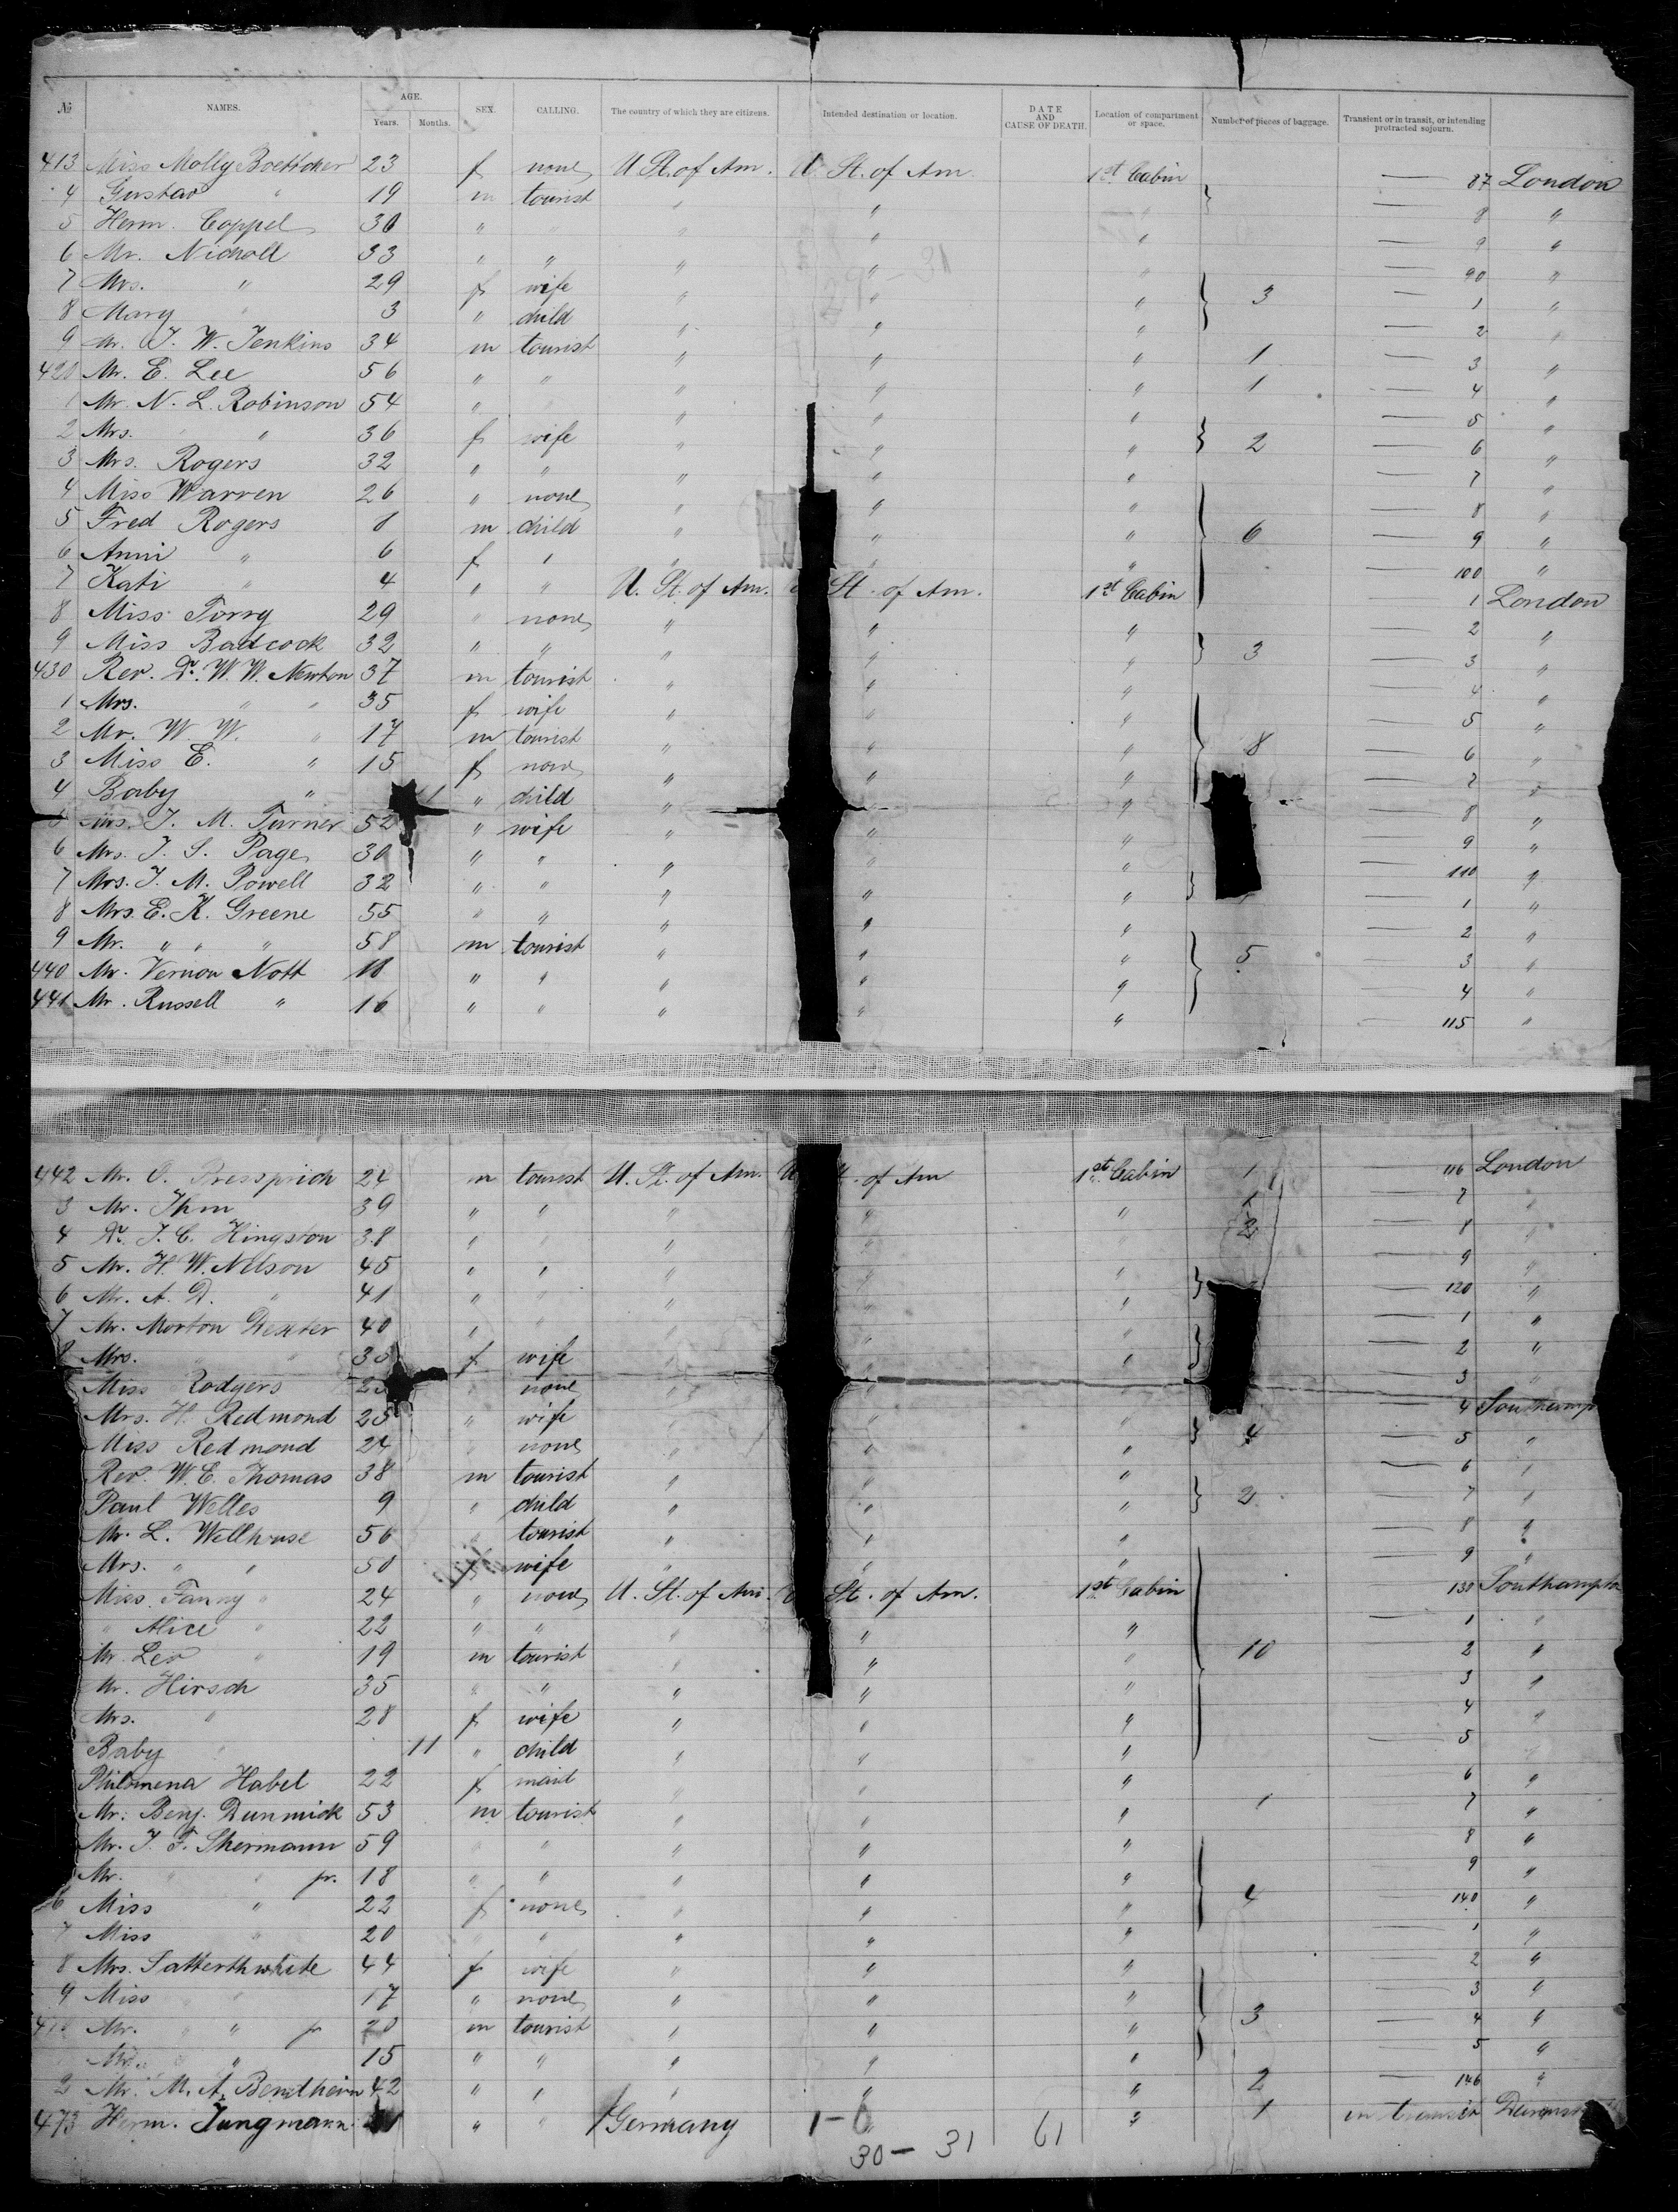 № NAMES. AGE. Years. Months. SEX. CALLING. The country of which they are citizens. Intended destination or location. DATE AND CAUSE OF DEATH. Location of compartment or space. Number of pieces of baggage. Transient or in transit, or intending protracted sojourn.
413 Miss Molly Boettcher 23 f none U. St. of Am. U. St. of Am. 1st Cabin — 87 London
4 Gustav " 19 m tourist " " " — 8 "
5 Herm. Coppel 30 " " " " " — 9 "
6 Mr. Nicholl 33 " " " " " — 90 "
7 Mrs. " 29 f wife " " " 3 — 1 "
8 Mary " 3 " child " " " — 2 "
9 Mr. J. W. Jenkins 34 m tourist " " " 1 — 3 "
420 Mr. E. Lee 56 " " " " " 1 — 4 "
1 Mr. N. L. Robinson 54 " " " " — 5 "
2 Mrs. " " 36 f wife " " " 2 — 6 "
3 Mrs. Rogers 32 " " " " " — 7 "
4 Miss Warren 26 " none " " " — 8 "
5 Fred Rogers 8 m child " " " 6 — 9 "
6 Anni " 6 f " " " " — 100 "
7 Kati " 4 " " U. St. of Am. St. of Am. 1st Cabin 1 London
8 Miss Torry 29 " none " " " — 2 "
9 Miss Badcock 32 " " " " " 3 — 3 "
430 Rev. Dr. W. W. Newton 37 m tourist " " " — 4 "
1 Mrs. " " 35 f wife " " " — 5 "
2 Mr. W. W. " 17 m tourist " " " 8 — 6 "
3 Miss E. " 15 f none " " " — 7 "
4 Baby " " child " " " — 8 "
5 Mrs. J. M. Turner 52 " wife " " " — 9 "
6 Mrs. J. S. Page 30 " " " " " — 110 "
7 Mrs. J. M. Powell 32 " " " " " — 1 "
8 Mrs. E. K. Greene 55 " " " " " — 2 "
9 Mr. " " " 58 m tourist " " " 5 — 3 "
440 Mr. Vernon Nott 18 " " " " " — 4 "
441 Mr. Russell " 16 " " " " " — 115 "
442 Mr. O. Pressprich 24 m tourist U. St. of Am. U of Am 1st Cabin 1 — 116 London
3 Mr. Ihm 39 " " " " " 1 — 7 "
4 Dr. J. C. Hingston 38 " " " " " 2 — 8 "
5 Mr. H. W. Nelson 45 " " " " " — 9 "
6 Mr. A. D. " 41 " " " " " — 120 "
7 Mr. Morton Dexter 40 " " " " " — 1 "
8 Mrs. " " f wife " " " — 2 "
Miss Rodgers " none " " — 3 "
Mrs. H. Redmond 25 " wife " " " 4 — 4 Southamp
Miss Redmond 24 " none " " " — 5 "
Rev. W. E. Thomas 38 m tourist " " " — 6 "
Paul Welles 9 " child " " " 2 — 7 "
Mr. L. Wellhouse 56 " tourist " " " — 8 "
Mrs. " " 50 f wife " " " — 9 "
Miss Fanny " 24 " none U. St. of Am. St. of Am. 1st Cabin — 130 Southampton
" Alice " 22 " " " " " — 1 "
Mr. Leo " 19 m tourist " " " 10 — 2 "
Mr. Hirsch 35 " " " " " — 3 "
Mrs. " 28 f wife " " " — 4 "
Baby " 11 " child " " " — 5 "
Philomena Habel 22 f maid " " " — 6 "
Mr. Benj. Dunmick 53 m tourist " " " 1 — 7 "
Mr. J. F. Shermann 59 " " " " " — 8 "
Mr. " " jr. 18 " " " " " — 9 "
6 Miss " 22 f none " " " 4 — 140 "
7 Miss " 20 " " " " " — 1 "
8 Mrs. Satterthwhite 44 f wife " " " — 2 "
9 Miss " 17 " none " " " — 3 "
470 Mr. " " jr 20 m tourist " " " 3 — 4 "
" 15 " " " " " — 5 "
2 Mr. M. A. Bendheim 42 " " " " " 2 — 146 "
473 Herm. Jungmann " " Germany " 1 in transit
1-0
30 - 31 61